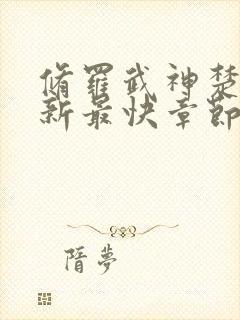 脩羅武神楚
新最快章節
隋夢